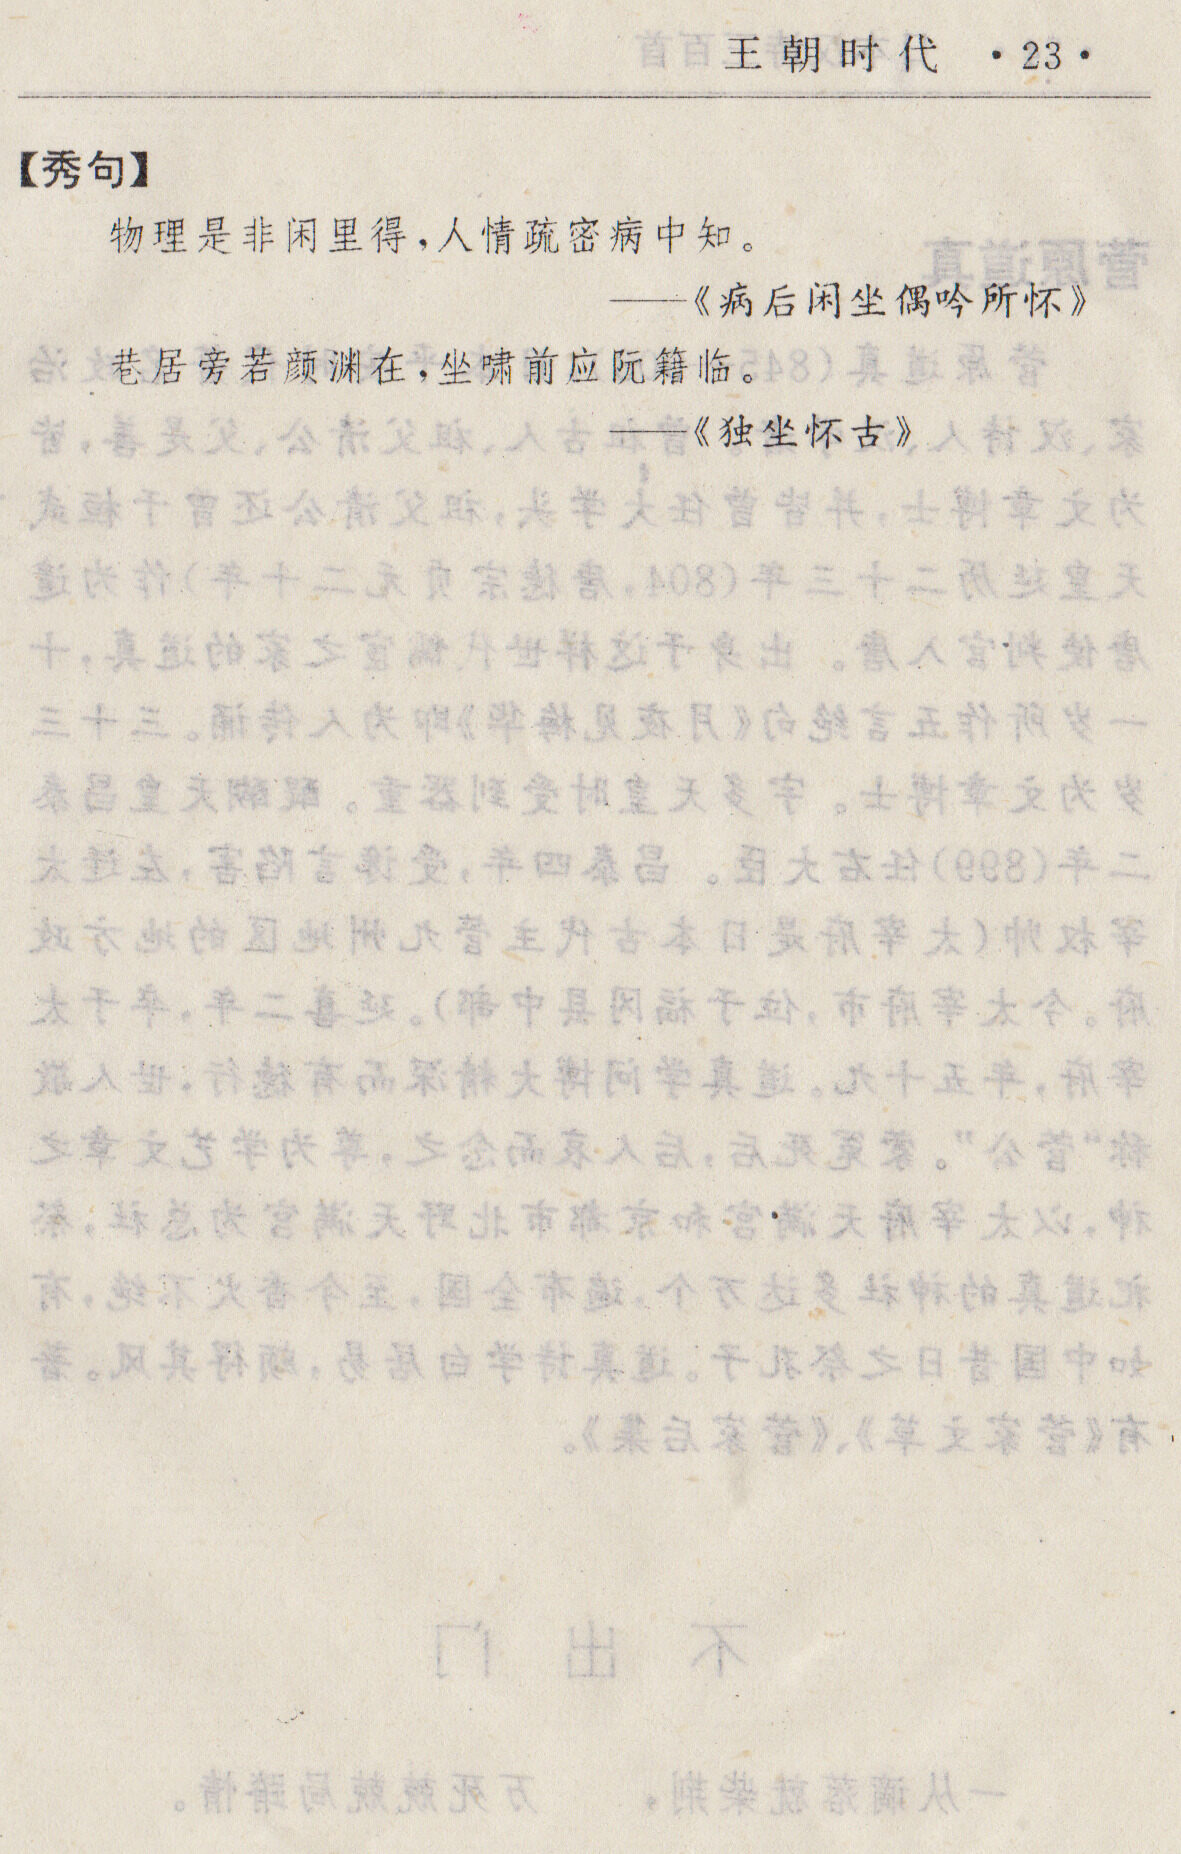 王朝时代 ·23·
【秀句】
物理是非闲里得，人情疏密病中知。
——《病后闲坐偶吟所怀》
巷居旁若颜渊在，坐啸前应阮籍临。
——《独坐怀古》